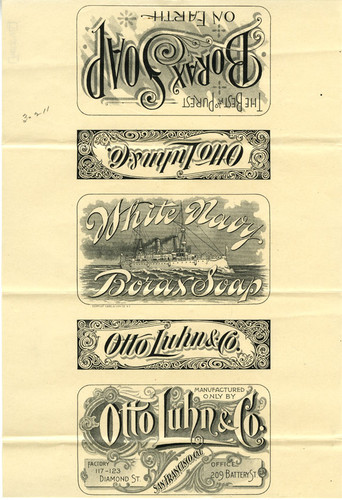 THE BEST & PUREST
BORAX SOAP
ON EARTH
3-2-11
Otto Luhn & Co.
White Navy
Borax Soap
Otto Luhn & Co.
MANUFACTURED
ONLY BY
Otto Luhn & Co.
SAN FRANCISCO, CAL.
FACTORY
117-123
DIAMOND ST.
OFFICE
209 BATTERY ST.